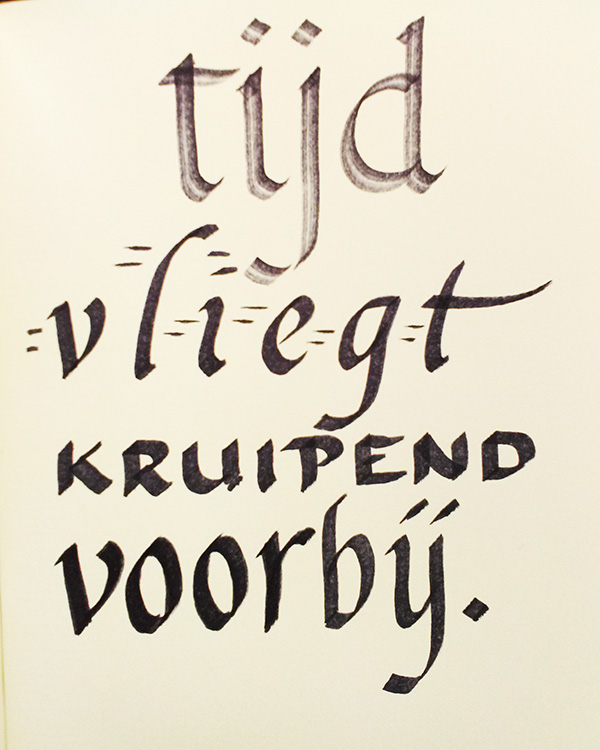 tijd
vliegt
KRUIPEND
voorbij.